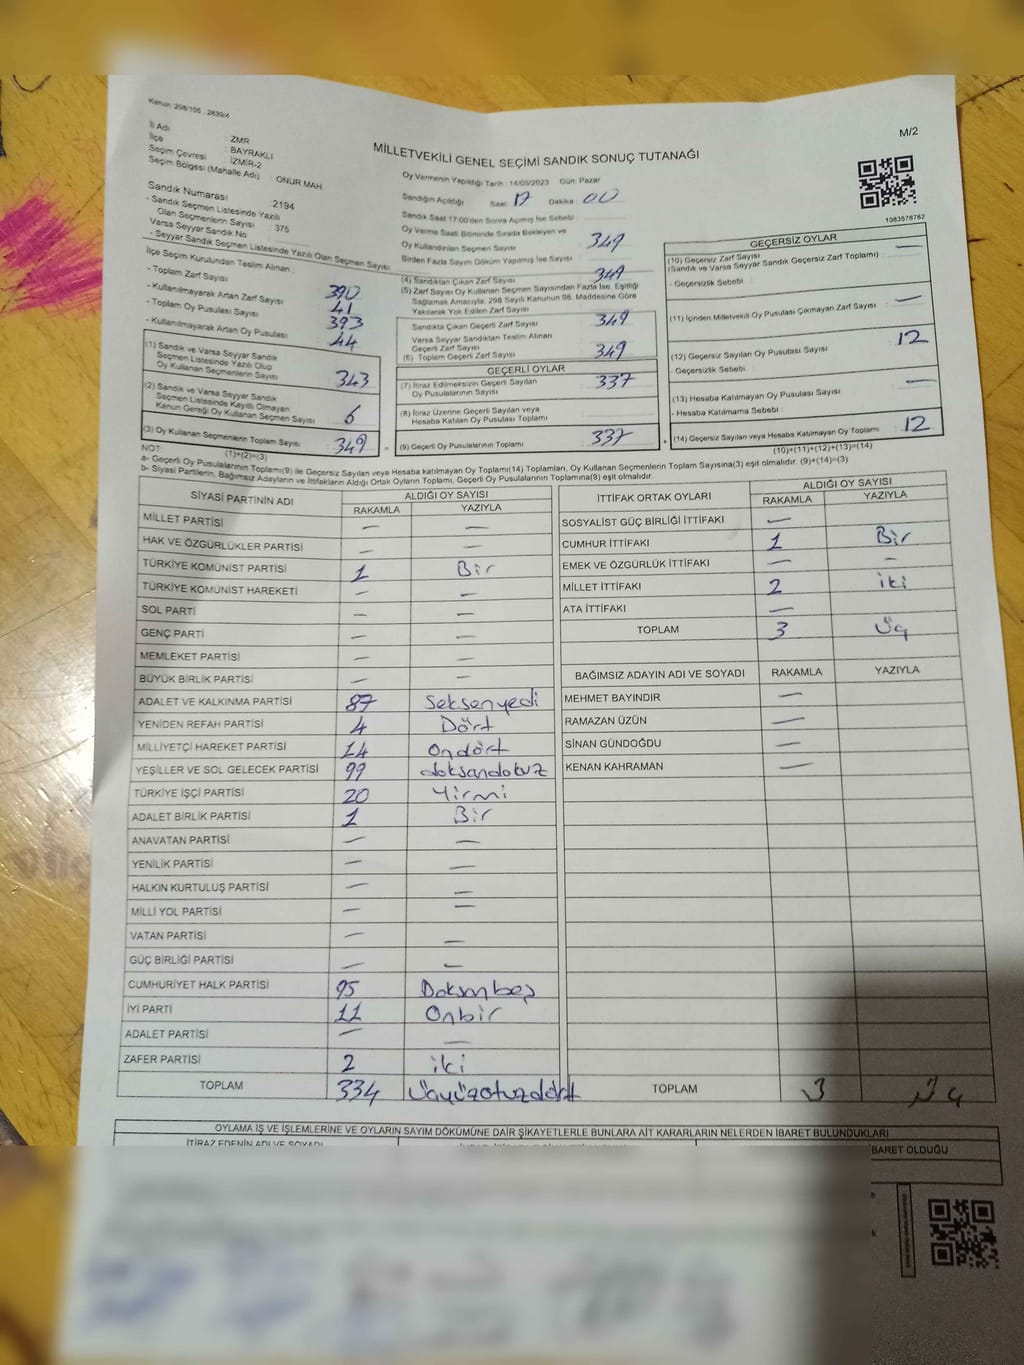 Kanun: 298/105 , 2839/4
M/2
MİLLETVEKİLİ GENEL SEÇİMİ SANDIK SONUÇ TUTANAĞI
İl Adı : ZMR
İlçe : BAYRAKLI
Seçim Çevresi : İZMİR-2
Seçim Bölgesi (Mahalle Adı) : ONUR MAH.
Sandık Numarası : 2194
- Sandık Seçmen Listesinde Yazılı
Olan Seçmenlerin Sayısı : 375
Varsa Seyyar Sandık No
- Seyyar Sandık Seçmen Listesinde Yazılı Olan Seçmen Sayısı
İlçe Seçim Kurulundan Teslim Alınan :
- Toplam Zarf Sayısı 390
- Kullanılmayarak Artan Zarf Sayısı 41
- Toplam Oy Pusulası Sayısı 393
- Kullanılmayarak Artan Oy Pusulası 44
(1) Sandık ve Varsa Seyyar Sandık
Seçmen Listesinde Yazılı Olup
Oy Kullanan Seçmenlerin Sayısı 343
(2) Sandık ve Varsa Seyyar Sandık
Seçmen Listesinde Kayıtlı Olmayan
Kanun Gereği Oy Kullanan Seçmen Sayısı 6
(3) Oy Kullanan Seçmenlerin Toplam Sayısı 349
(1)+(2)=(3)
Oy Vermenin Yapıldığı Tarih : 14/05/2023 Gün: Pazar
Sandığın Açıldığı Saat 17 Dakika : 00
Sandık Saat 17:00'den Sonra Açılmış İse Sebebi :
Oy Verme Saati Bitiminde Sırada Bekleyen ve
Oy Kullandırılan Seçmen Sayısı 349
Birden Fazla Sayım Döküm Yapılmış İse Sayısı
(4) Sandıktan Çıkan Zarf Sayısı 349
(5) Zarf Sayısı Oy Kullanan Seçmen Sayısından Fazla İse, Eşitliği
Sağlamak Amacıyla; 298 Sayılı Kanunun 98. Maddesine Göre
Yakılarak Yok Edilen Zarf Sayısı
Sandıkta Çıkan Geçerli Zarf Sayısı 349
Varsa Seyyar Sandıktan Teslim Alınan
Geçerli Zarf Sayısı
(6) Toplam Geçerli Zarf Sayısı 349
GEÇERLİ OYLAR
(7) İtiraz Edilmeksizin Geçerli Sayılan
Oy Pusulalarının Sayısı 337
(8) İtiraz Üzerine Geçerli Sayılan veya
Hesaba Katılan Oy Pusulası Toplamı
(9) Geçerli Oy Pusulalarının Toplamı 337
1083578782
GEÇERSİZ OYLAR
(10) Geçersiz Zarf Sayısı —
(Sandık ve Varsa Seyyar Sandık Geçersiz Zarf Toplamı)
- Geçersizlik Sebebi :
(11) İçinden Milletvekili Oy Pusulası Çıkmayan Zarf Sayısı —
(12) Geçersiz Sayılan Oy Pusulası Sayısı 12
- Geçersizlik Sebebi :
(13) Hesaba Katılmayan Oy Pusulası Sayısı —
- Hesaba Katılmama Sebebi :
(14) Geçersiz Sayılan veya Hesaba Katılmayan Oy Toplamı 12
(10)+(11)+(12)+(13)=(14)
NOT:
a- Geçerli Oy Pusulalarının Toplamı(9) ile Geçersiz Sayılan veya Hesaba katılmayan Oy Toplamı(14) Toplamları, Oy Kullanan Seçmenlerin Toplam Sayısına(3) eşit olmalıdır. (9)+(14)=(3)
b- Siyasi Partilerin, Bağımsız Adayların ve İttifakların Aldığı Ortak Oyların Toplamı, Geçerli Oy Pusulalarının Toplamına(9) eşit olmalıdır.
SİYASİ PARTİNİN ADI ALDIĞI OY SAYISI
RAKAMLA YAZIYLA
MİLLET PARTİSİ — —
HAK VE ÖZGÜRLÜKLER PARTİSİ — —
TÜRKİYE KOMÜNİST PARTİSİ 1 Bir
TÜRKİYE KOMÜNİST HAREKETİ — —
SOL PARTİ — —
GENÇ PARTİ — —
MEMLEKET PARTİSİ — —
BÜYÜK BİRLİK PARTİSİ — —
ADALET VE KALKINMA PARTİSİ 87 Seksenyedi
YENİDEN REFAH PARTİSİ 4 Dört
MİLLİYETÇİ HAREKET PARTİSİ 14 Ondört
YEŞİLLER VE SOL GELECEK PARTİSİ 99 doksandokuz
TÜRKİYE İŞÇİ PARTİSİ 20 Yirmi
ADALET BİRLİK PARTİSİ 1 Bir
ANAVATAN PARTİSİ — —
YENİLİK PARTİSİ — —
HALKIN KURTULUŞ PARTİSİ — —
MİLLİ YOL PARTİSİ — —
VATAN PARTİSİ — —
GÜÇ BİRLİĞİ PARTİSİ — —
CUMHURİYET HALK PARTİSİ 95 Doksanbeş
İYİ PARTİ 11 Onbir
ADALET PARTİSİ — —
ZAFER PARTİSİ 2 iki
TOPLAM 334 Üçyüzotuzdört
İTTİFAK ORTAK OYLARI ALDIĞI OY SAYISI
RAKAMLA YAZIYLA
SOSYALİST GÜÇ BİRLİĞİ İTTİFAKI —
CUMHUR İTTİFAKI 1 Bir
EMEK VE ÖZGÜRLÜK İTTİFAKI — —
MİLLET İTTİFAKI 2 iki
ATA İTTİFAKI —
TOPLAM 3 Üç
BAĞIMSIZ ADAYIN ADI VE SOYADI RAKAMLA YAZIYLA
MEHMET BAYINDIR —
RAMAZAN ÜZÜN —
SİNAN GÜNDOĞDU —
KENAN KAHRAMAN —
TOPLAM 3 Üç
OYLAMA İŞ VE İŞLEMLERİNE VE OYLARIN SAYIM DÖKÜMÜNE DAİR ŞİKAYETLERLE BUNLARA AİT KARARLARIN NELERDEN İBARET BULUNDUKLARI
İTİRAZ EDENİN ADI VE SOYADI
İBARET OLDUĞU